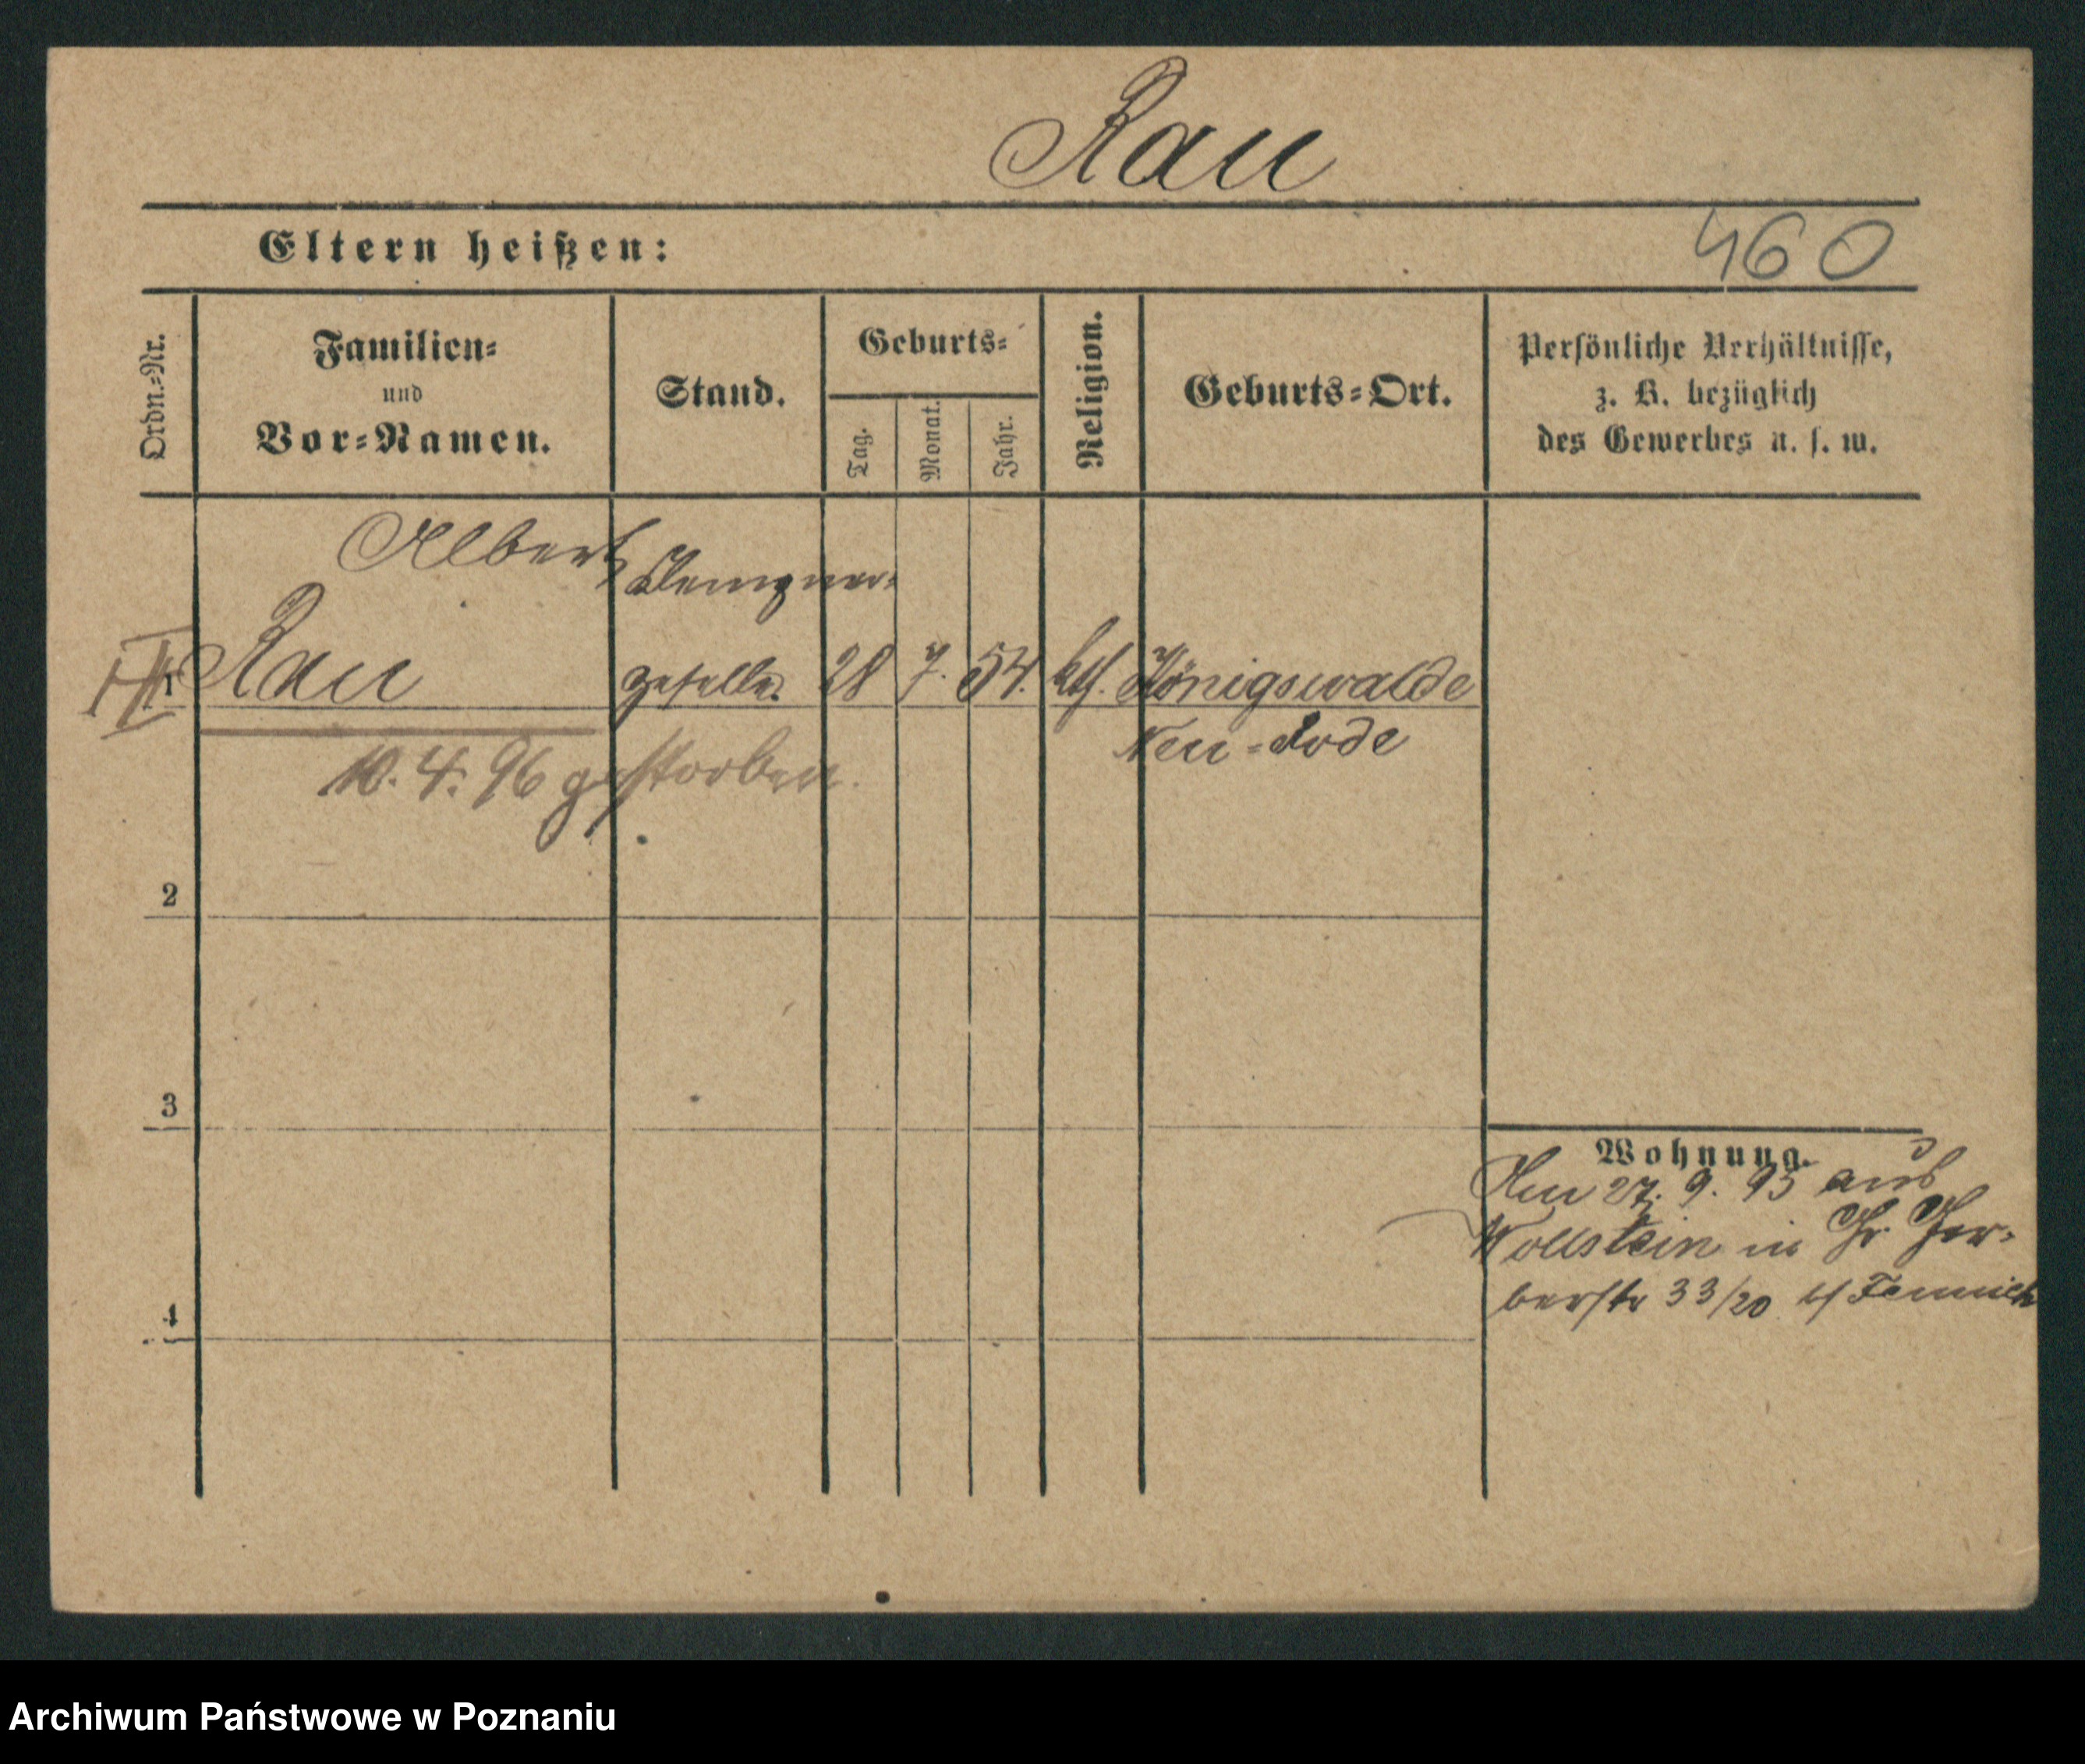 Rau
Eltern heißen:
460
Ordn.=Nr.
Familien=
und
Vor=Namen.
Stand.
Geburts=
Tag.
Monat.
Jahr.
Religion.
Geburts=Ort.
Persönliche Verhältnisse,
z. B. bezüglich
des Gewerbes u. s. w.
Albert
Klempner=
1
Rau
geselle
28
7.
54.
kth.
Königswalde
Neu=Rode
10. 4. 96 gestorben.
2
3
Wohnung.
27. 9. 95 aus
Wollstein in Gr. Ger=
berstr 33/20
4
Archiwum Państwowe w Poznaniu